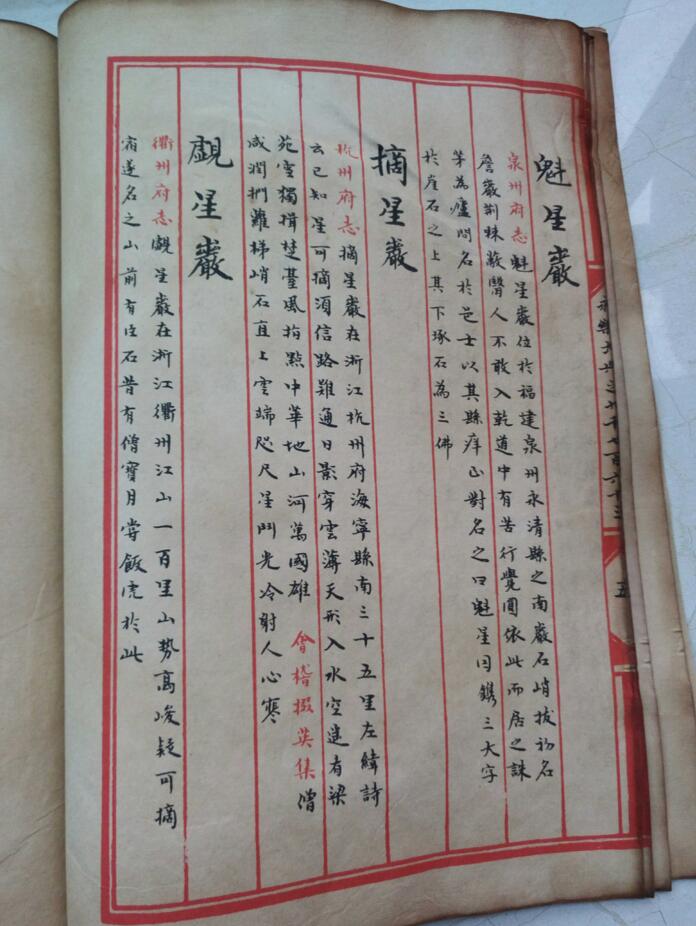 魁星巖
泉州府志魁星巖位於福建泉州永清縣之南巖石峭拔初名
詹巖荆棘蔽翳人不敢入乾道中有苦行覺圓依此而居之誅
茅為廬問名於邑士以其縣庠正對名之曰魁星因鐫三大字
於崖石之上其下琢石為三佛
摘星巖
杭州府志摘星巖在浙江杭州府海寧縣南三十五里左緯詩
云已知星可摘須信路難通日影穿雲薄天形入水空建有梁
苑雪獨揖楚臺風指點中華地山河萬國雄 會稽掇英集僧
咸潤捫難梯峭石直上雲端咫尺星鬥光冷射人心寒
覰星巖
衢州府志覰星巖在浙江衢州江山一百里山勢高峻疑可摘
宿遂名之山前有巨石昔有僧寶月嘗飯虎於此
五